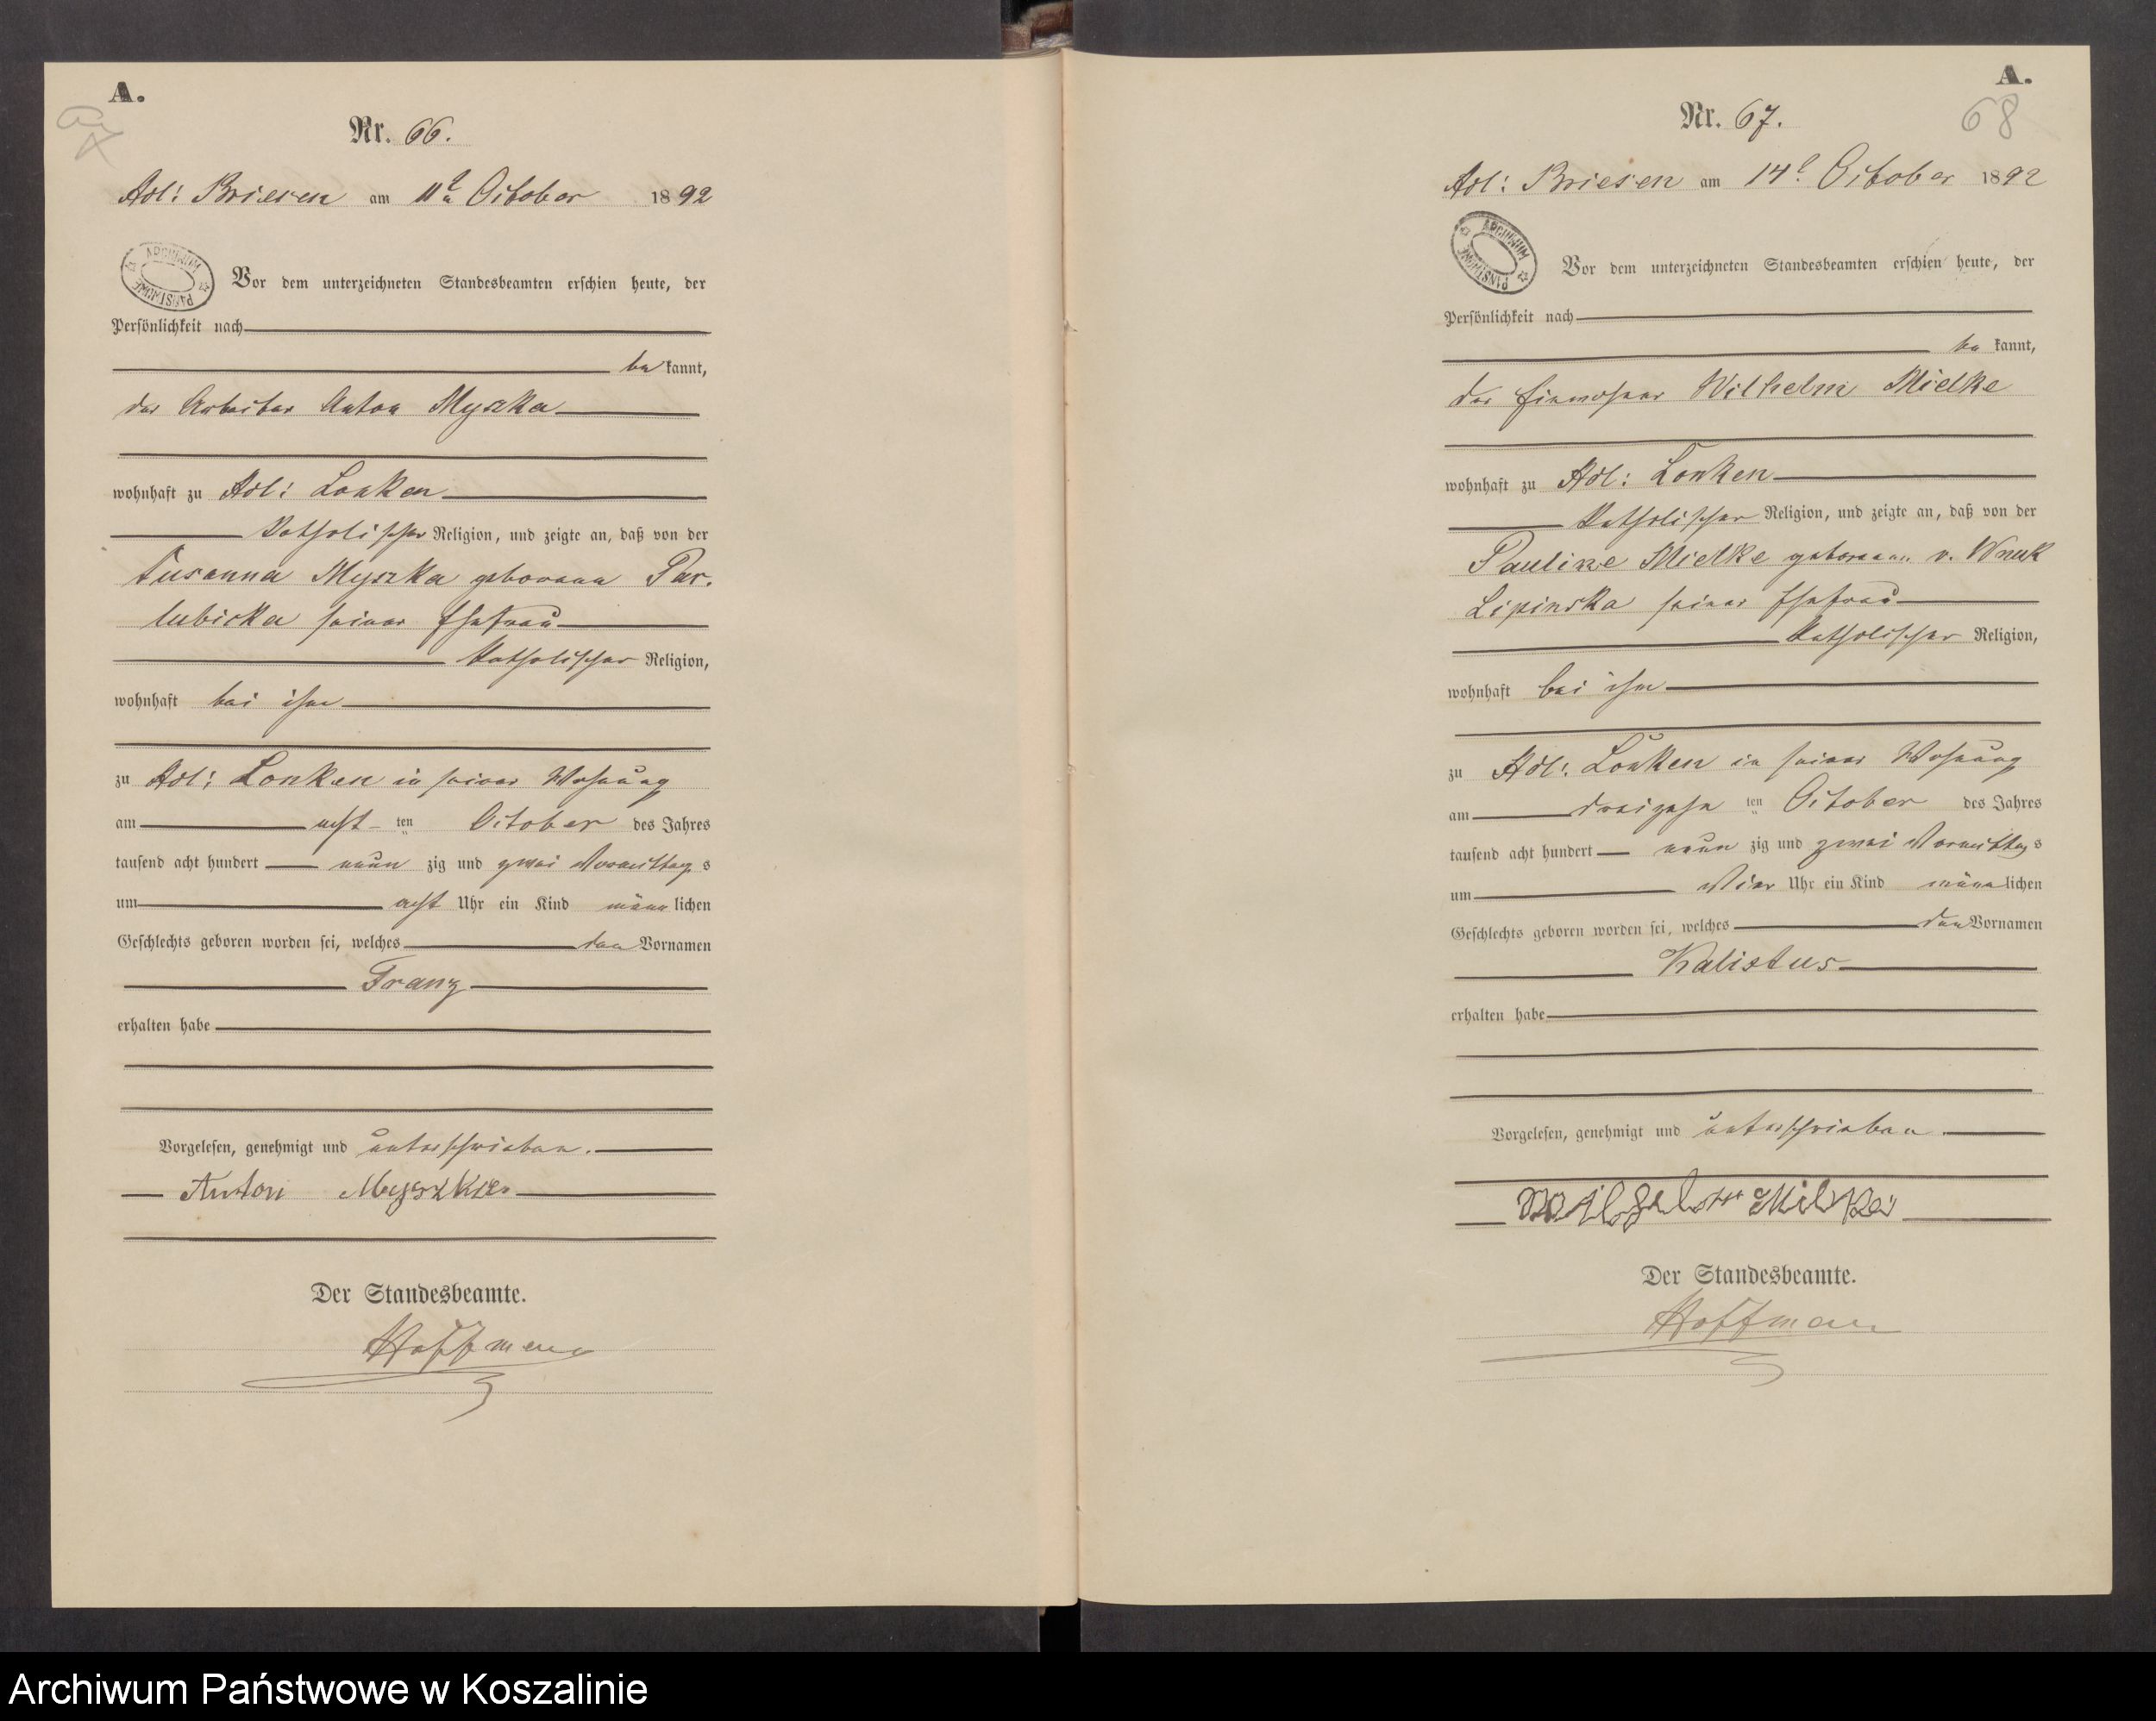 A.
Nr. 66.
Adl: Briesen am 11t October 1892
ARCHIWUM PAŃSTWOWE
Vor dem unterzeichneten Standesbeamten erschien heute, der
Persönlichkeit nach
be kannt,
der Arbeiter Anton Myszka
wohnhaft zu Adl: Lonken
katholischer Religion, und zeigte an, daß von der
Susanna Myszka geborene Par.
lubicka seiner Ehefrau
katholischer Religion,
wohnhaft bei ihm
zu Adl: Lonken in seiner Wohnung
am acht ten October des Jahres
tausend acht hundert neun zig und zwei Vormittag s
um acht Uhr ein Kind männ lichen
Geschlechts geboren worden sei, welches den Vornamen
Franz
erhalten habe
Vorgelesen, genehmigt und unterschrieben.
Anton Myszka
Der Standesbeamte.
Hoffmann
A.
68
Nr. 67.
Adl: Briesen am 14t October 1892
ARCHIWUM PAŃSTWOWE
Vor dem unterzeichneten Standesbeamten erschien heute, der
Persönlichkeit nach
be kannt,
der Einwohner Wilhelm Mielke
wohnhaft zu Adl: Lonken
katholischer Religion, und zeigte an, daß von der
Pauline Mielke geborenen v. Wnuk
Lipinska seiner Ehefrau
katholischer Religion,
wohnhaft bei ihm
zu Adl: Lonken in seiner Wohnung
am dreizehn ten October des Jahres
tausend acht hundert neun zig und zwei Vormittag s
um Vier Uhr ein Kind männ lichen
Geschlechts geboren worden sei, welches den Vornamen
Kalistus
erhalten habe
Vorgelesen, genehmigt und unterschrieben.
Wilhelm Milke
Der Standesbeamte.
Hoffmann
Archiwum Państwowe w Koszalinie